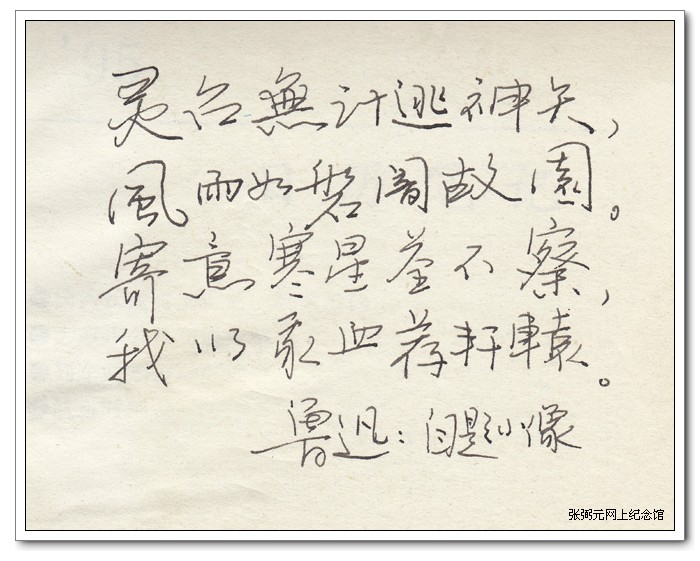 灵台無计逃神矢，
風雨如磐闇故園。
寄意寒星荃不察，
我以我血荐轩轅。
鲁迅：自题小像
张弼元网上纪念馆